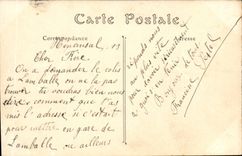 Carte Postale
Correspondance
Adresse
Henansal
Cher Père
On a demander le colis
a Lamballe on ne l'a pas
trouvé tu voudras bien nous
dire comment que t'as
mis l'adresse si c'etait
pour mettre en gare de
Lamballe ou ailleurs
réponds nous
au plus vite
pour savoir
a quoi s'en tenir
Bonjour de tous